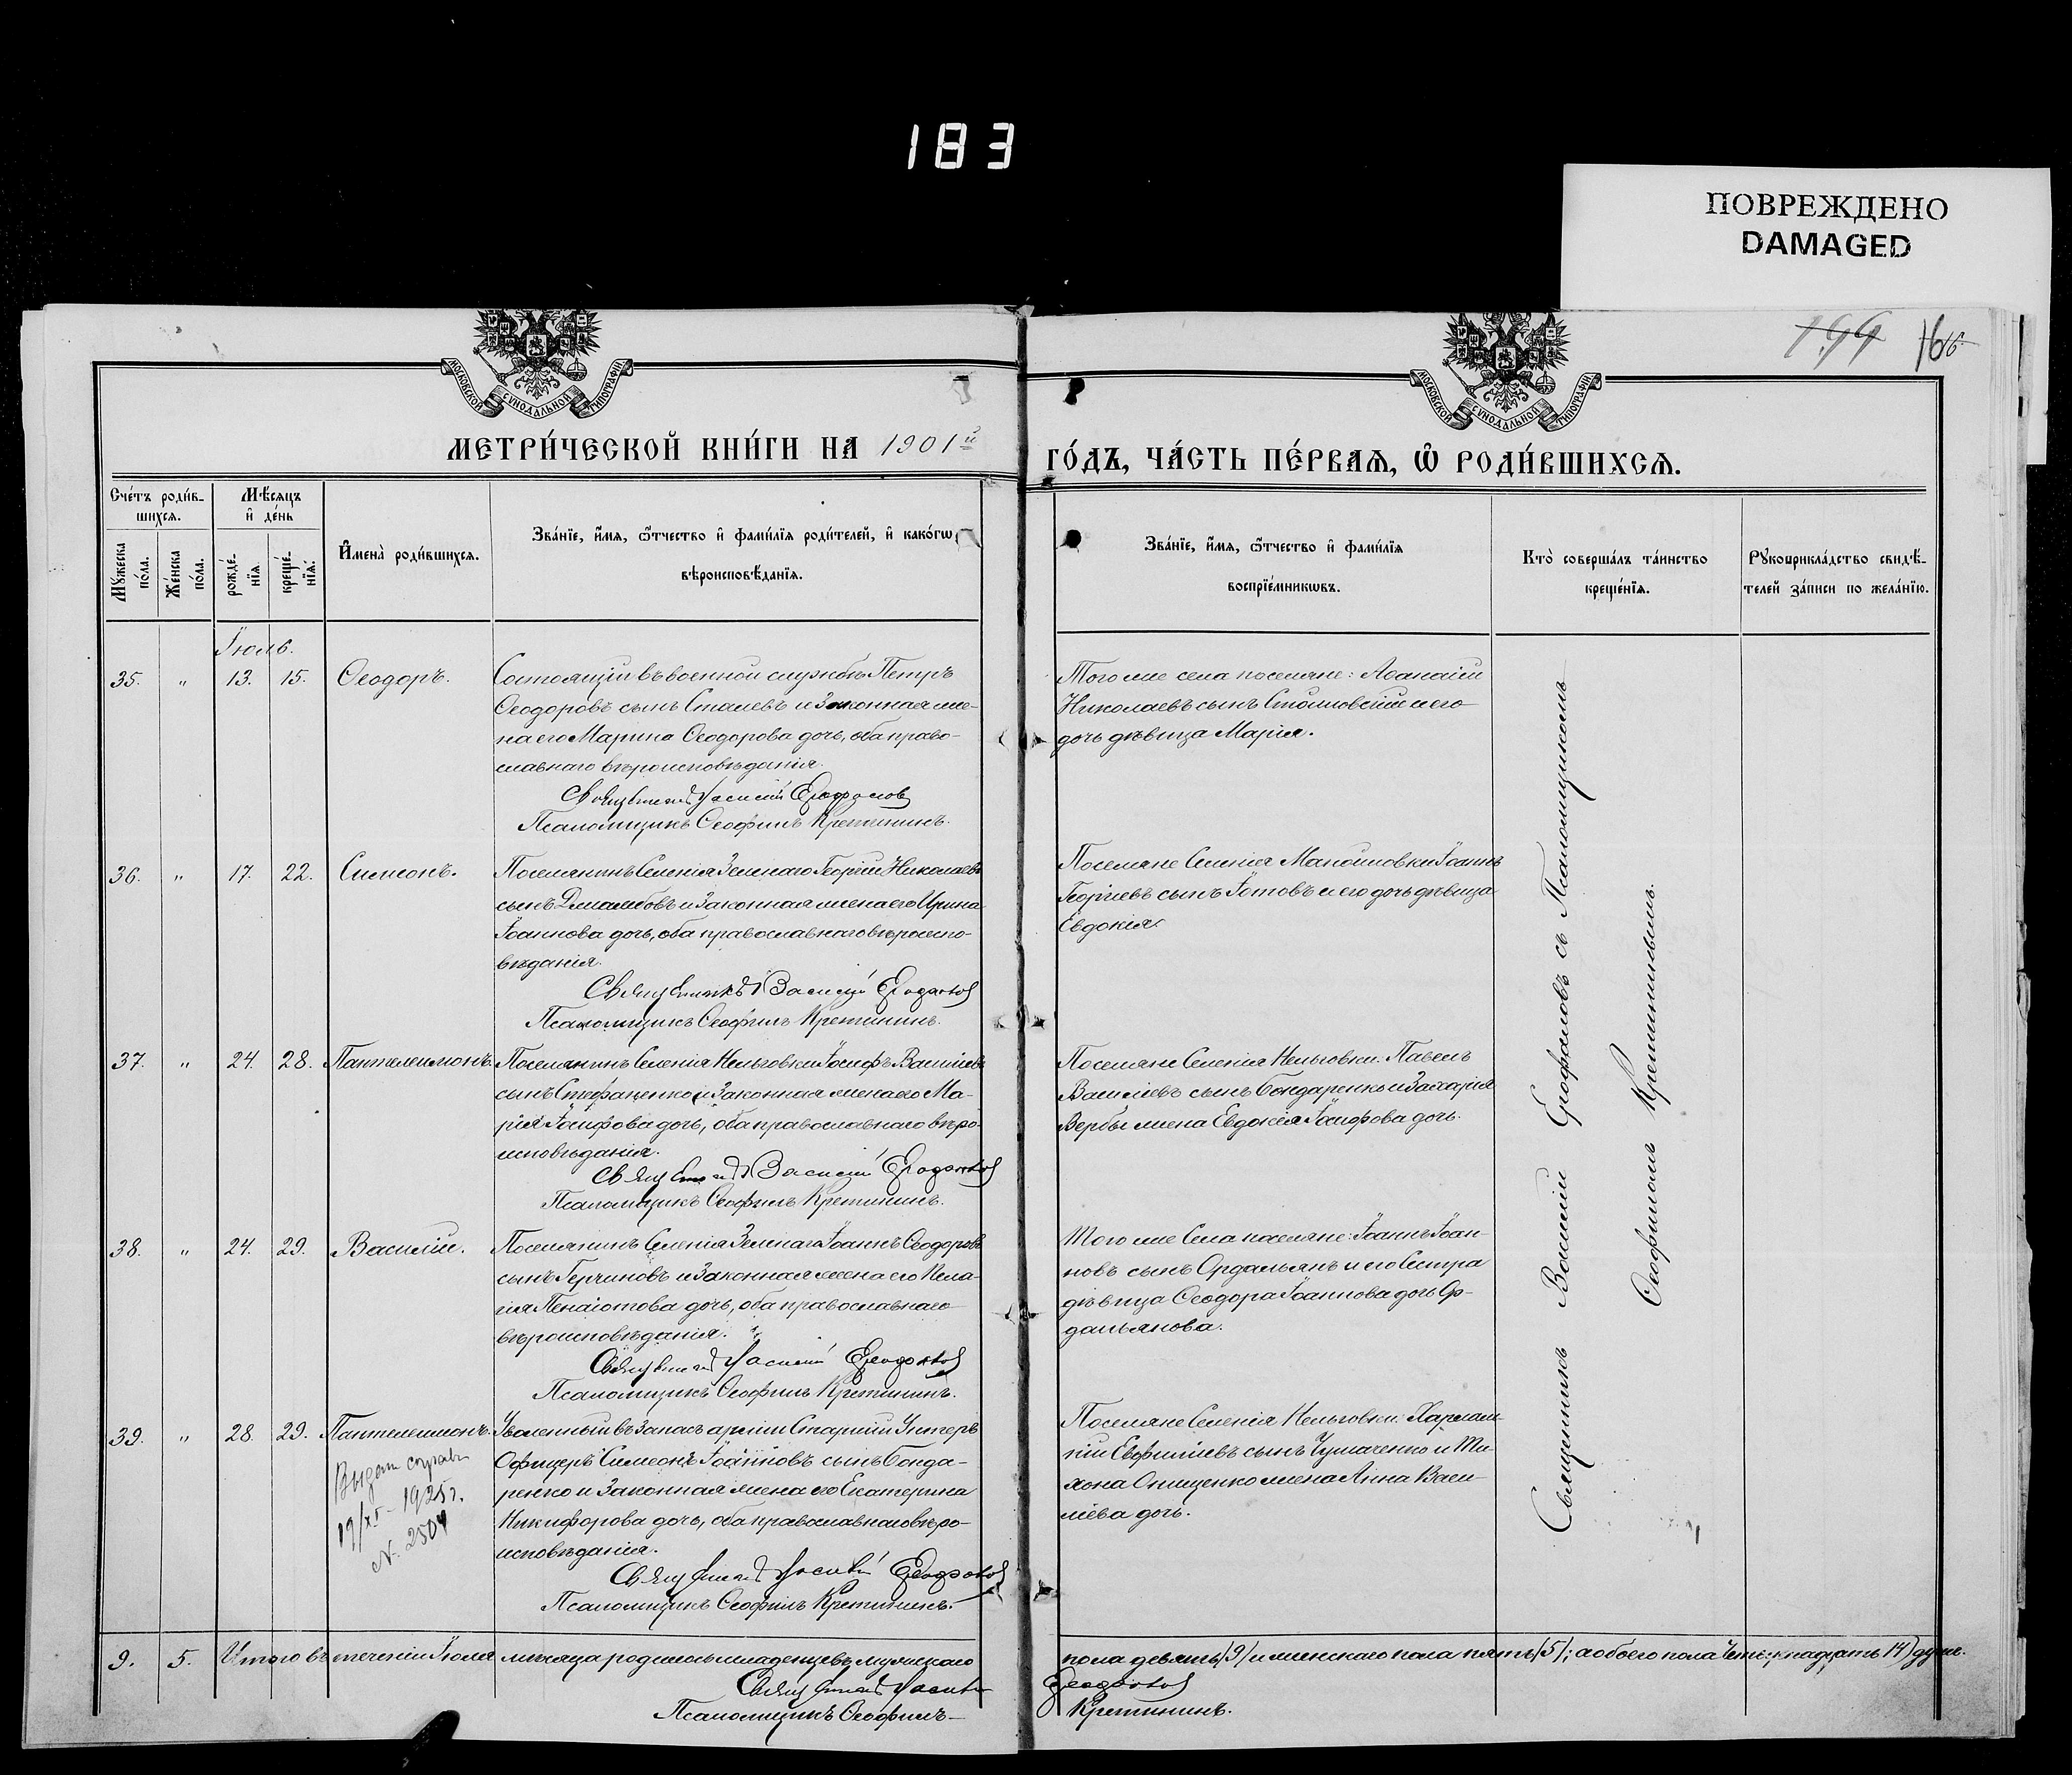 183
ПОВРЕЖДЕНО
DAMAGED
199 166
МОСКОВСКОЙ СѴНОДАЛЬНОЙ ТИПОГРАФІИ
МОСКОВСКОЙ СѴНОДАЛЬНОЙ ТИПОГРАФІИ
МЕТРИ́ЧЕСКОЙ КНИ́ГИ НА 1901й
ГО́ДЪ, ЧА́СТЬ ПЕ́РВАѦ, Ѡ РОДИ́ВШИХСѦ.
Счётъ роди́в-
шихсѧ.
Мꙋжеска по́ла.
Же́нска по́ла.
Мѣ́сѧцъ и҆ де́нь
рожде́-нїѧ.
креще́-нїѧ.
И҆мена̀ роди́вшихсѧ.
Зва́нїе, и҆́мѧ, ѻ҆́тчество и҆ фами́лїѧ роди́телей, и҆ како́гѡ
вѣроисповѣ́данїѧ.
Зва́нїе, и҆́мѧ, ѻ҆́тчество и҆ фами́лїѧ
воспрїе́мникѡвъ.
Кто̀ соверша́лъ та́инство
креще́нїѧ.
Рꙋкоприкла́дство свидѣ́-
телей за́писи по жела́нїю.
Іюль.
35. " 13. 15. Ѳеодоръ.
Состоящій въ военной службѣ Петръ
Ѳеодоровъ сынъ Сталевъ и законная же-
на его Марина Ѳеодорова дочь, оба право-
славнаго вѣроисповѣданія.
Священникъ Василій Ерофаловъ
Псаломщикъ Ѳеофилъ Кретининъ.
Того же села поселяне: Аѳанасій
Николаевъ сынъ Стойловскій и его
дочь дѣвица Марія.
36. " 17. 22. Симеонъ.
Поселянинъ Селенія Зеленаго Георгій Николаевъ
сынъ и законная жена его Ирина
Іоаннова дочь, оба православнаго вѣроиспо-
вѣданія.
Священникъ Василій Ерофаловъ
Псаломщикъ Ѳеофилъ Кретининъ.
Поселяне Селенія Мануйловки Іоаннъ
Георгіевъ сынъ и его дочь дѣвица
Евдокія.
37. " 24. 28. Пантелеимонъ.
Поселянинъ Селенія Нельговки Іосифъ Васильевъ
сынъ Стефаненко и законная жена его Ма-
рія Іосифова дочь, оба православнаго вѣро-
исповѣданія.
Священникъ Василій Ерофаловъ
Псаломщикъ Ѳеофилъ Кретининъ.
Поселяне Селенія Нельговки: Павелъ
Василіевъ сынъ Бондаренко и Захарія
Вербы жена Евдокія Іосифова дочь.
38. " 24. 29. Василій.
Поселянинъ Селенія Зеленаго Іоаннъ Ѳеодоровъ
сынъ Герчиновъ и законная жена его Пела-
гія Пенаіотова дочь, оба православнаго
вѣроисповѣданія.
Священникъ Василій Ерофаловъ
Псаломщикъ Ѳеофилъ Кретининъ.
Того же Села поселяне: Іоаннъ Іоан-
новъ сынъ Ордальянъ и его Сестра
дѣвица Ѳеодора Іоаннова дочь Ор-
дальянова.
39. " 28. 29. Пантелеимонъ.
Выдан справк
19/XI - 1925 г.
№ 2504
Уволенный въ запасъ арміи Старшій Унтеръ
Офицеръ Симеонъ Іоанновъ сынъ Бонда-
ренко и законная жена его Екатерина
Никифорова дочь, оба православнаго вѣро-
исповѣданія.
Священникъ Василій Ерофаловъ
Псаломщикъ Ѳеофилъ Кретининъ.
Поселяне Селенія Нельговки: Харлам-
пій Евфиміевъ сынъ Чумаченко и Ти-
хона Онищенко жена Анна Васи-
ліева дочь.
Священникъ Василій Ерофаловъ съ Псаломщикомъ
Ѳеофиломъ Кретининымъ.
9. 5. Итого въ теченіи Іюля мѣсяца родилось младенцевъ мужескаго
пола девять /9/ и женскаго пола пять /5/; а обоего пола четырнадцать 14) душъ.
Священникъ Василій Ерофаловъ
Псаломщикъ Ѳеофилъ Кретининъ.